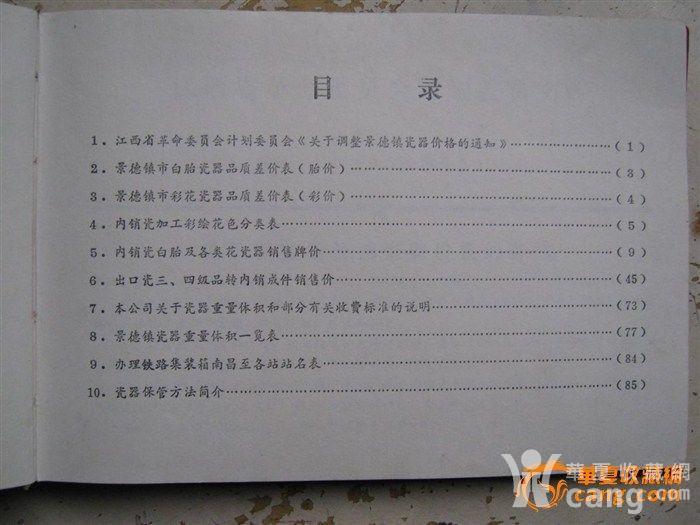 目 录
1．江西省革命委员会计划委员会《关于调整景德镇瓷器价格的通知》……………………（1）
2．景德镇市白胎瓷器品质差价表（胎价）……………………（3）
3．景德镇市彩花瓷器品质差价表（彩价）……………………（4）
4．内销瓷加工彩绘花色分类表……………………（5）
5．内销瓷白胎及各类花瓷器销售牌价……………………（9）
6．出口瓷三、四级品转内销成件销售价……………………（45）
7．本公司关于瓷器重量体积和部分有关收费标准的说明……………………（73）
8．景德镇瓷器重量体积一览表……………………（77）
9．办理铁路集装箱南昌至各站站名表……………………（84）
10．瓷器保管方法简介……………………（85）
華夏收藏網
cang.com